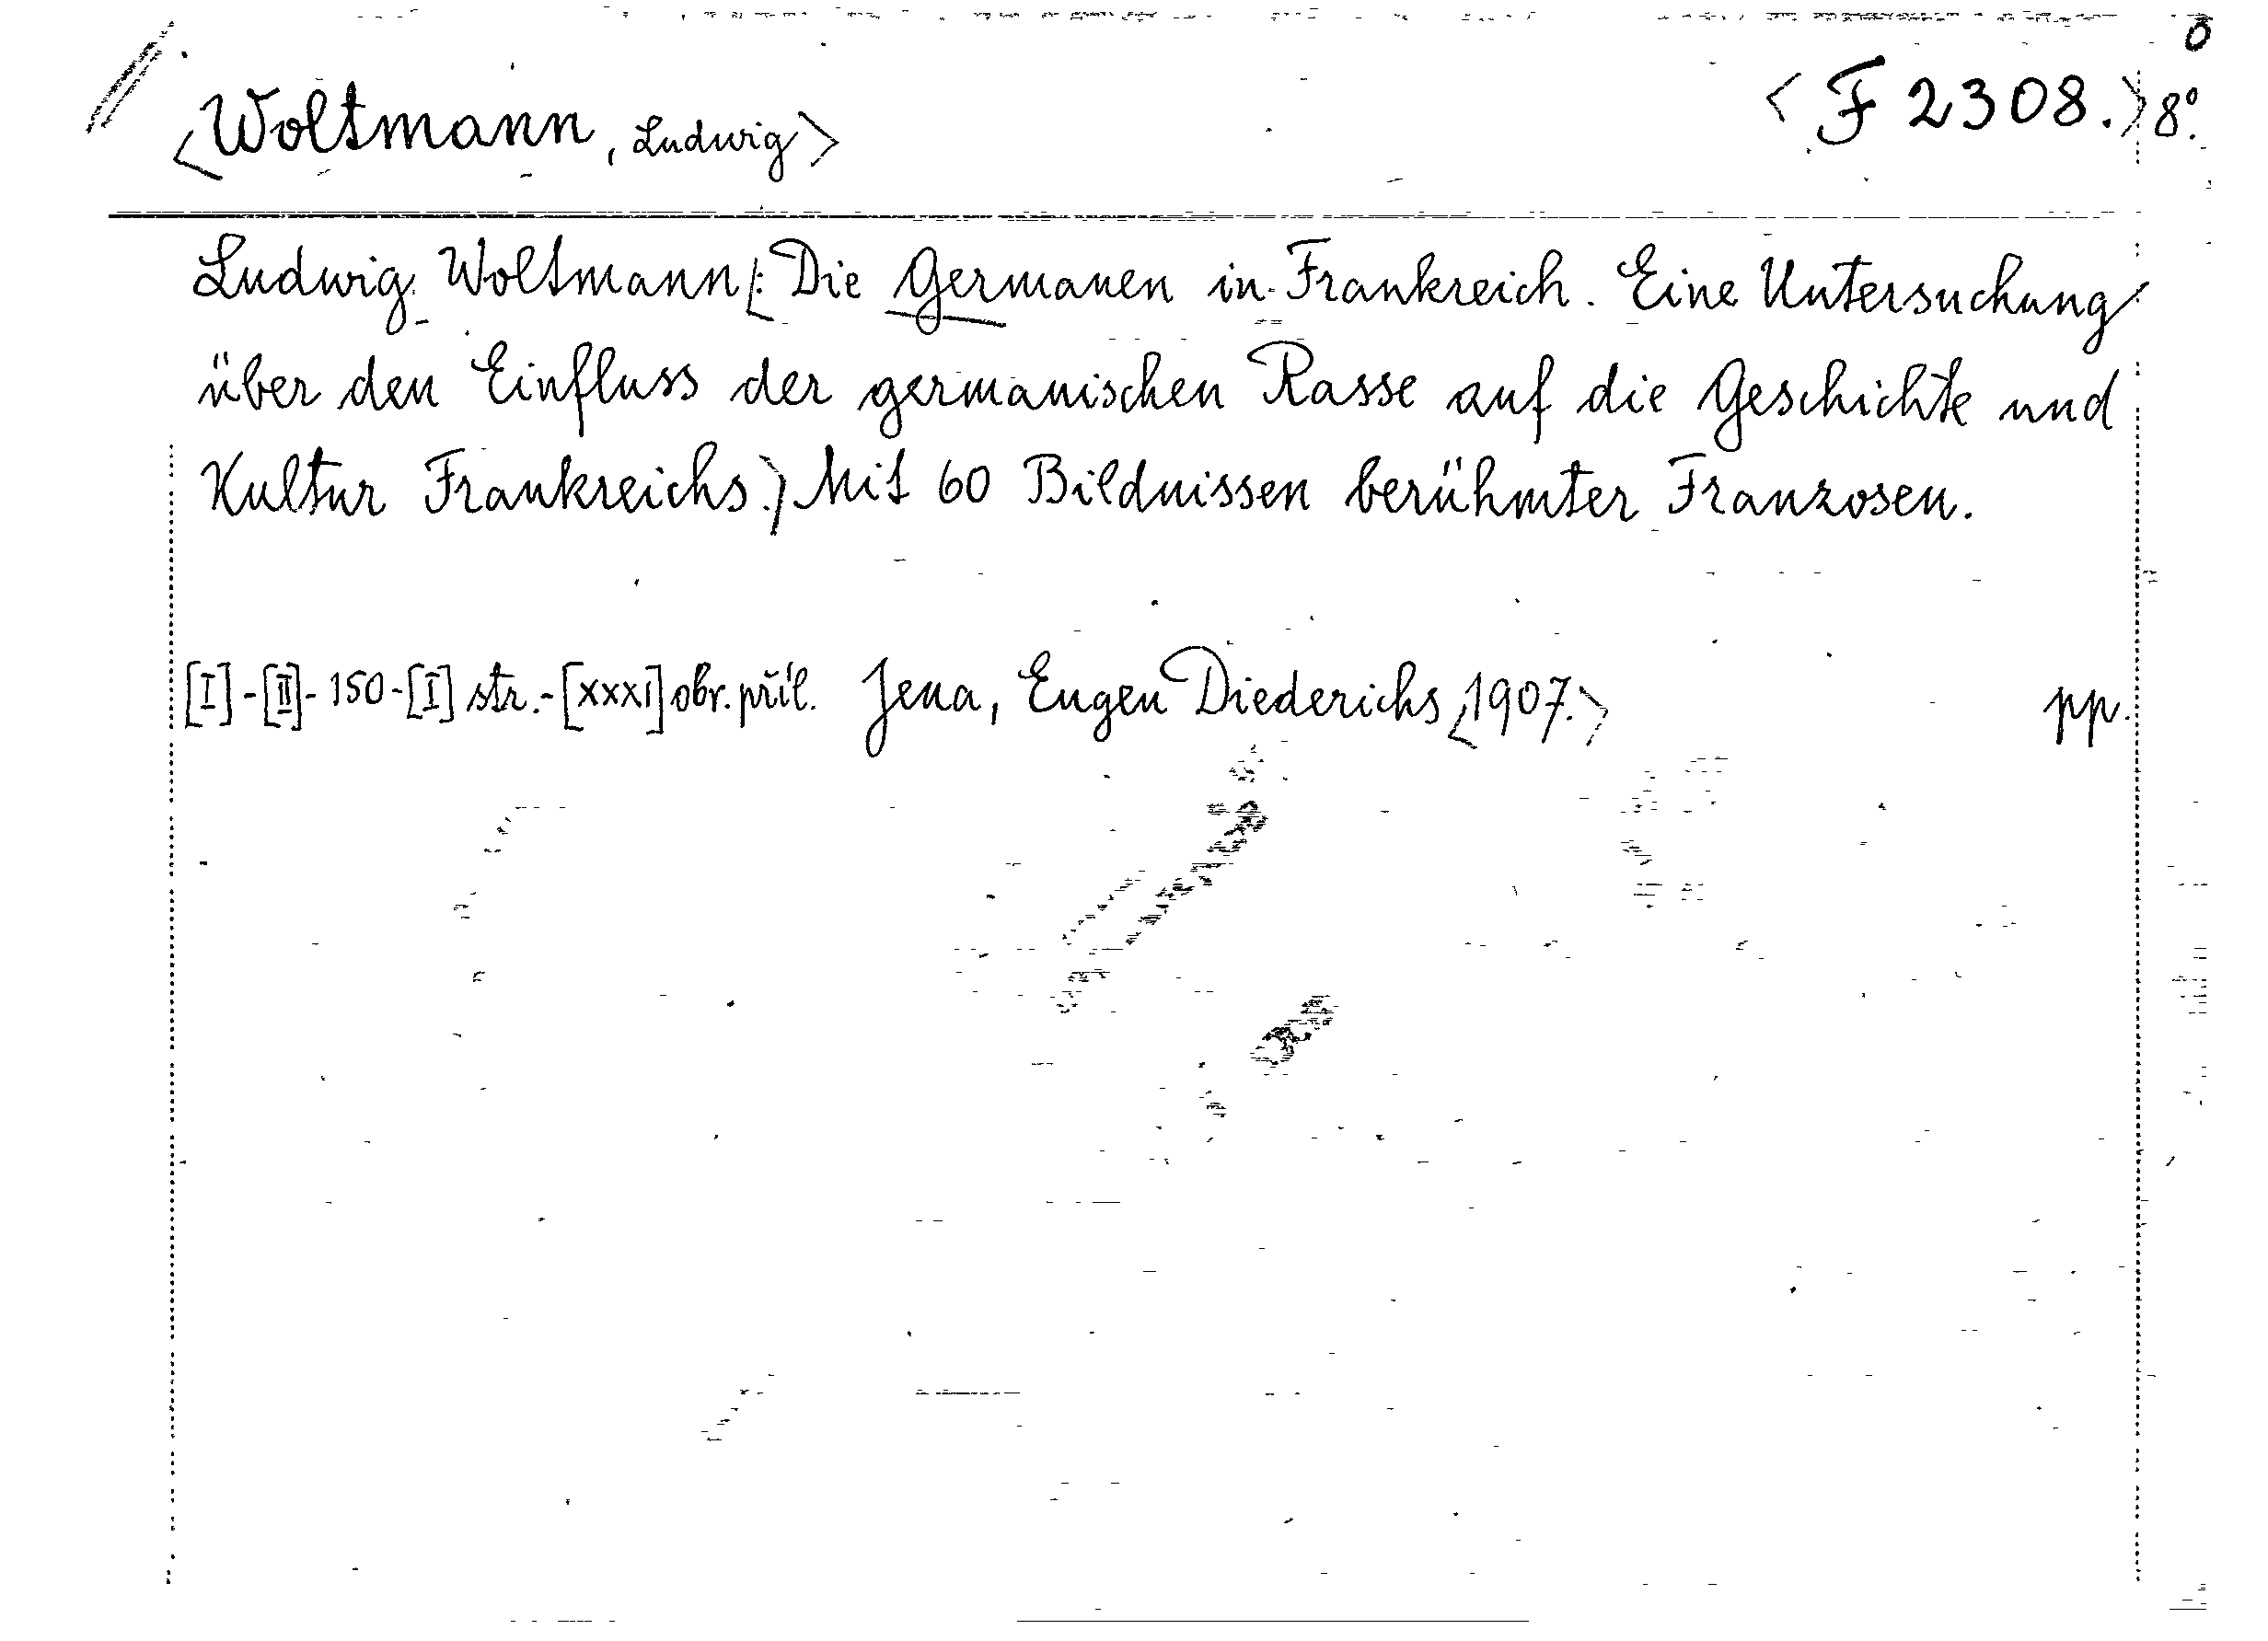 0
<Woltmann, Ludwig> <F 2308.> 8°.
Ludwig Woltmann: <Die Germanen in Frankreich. Eine Untersuchung
über den Einfluss der germanischen Rasse auf die Geschichte und
Kultur Frankreichs.> Mit 60 Bildnissen berühmter Franzosen.
[I]-[II]-150-[I] str.-[XXXI] obr. příl. Jena, Eugen Diederichs <1907.> pp.